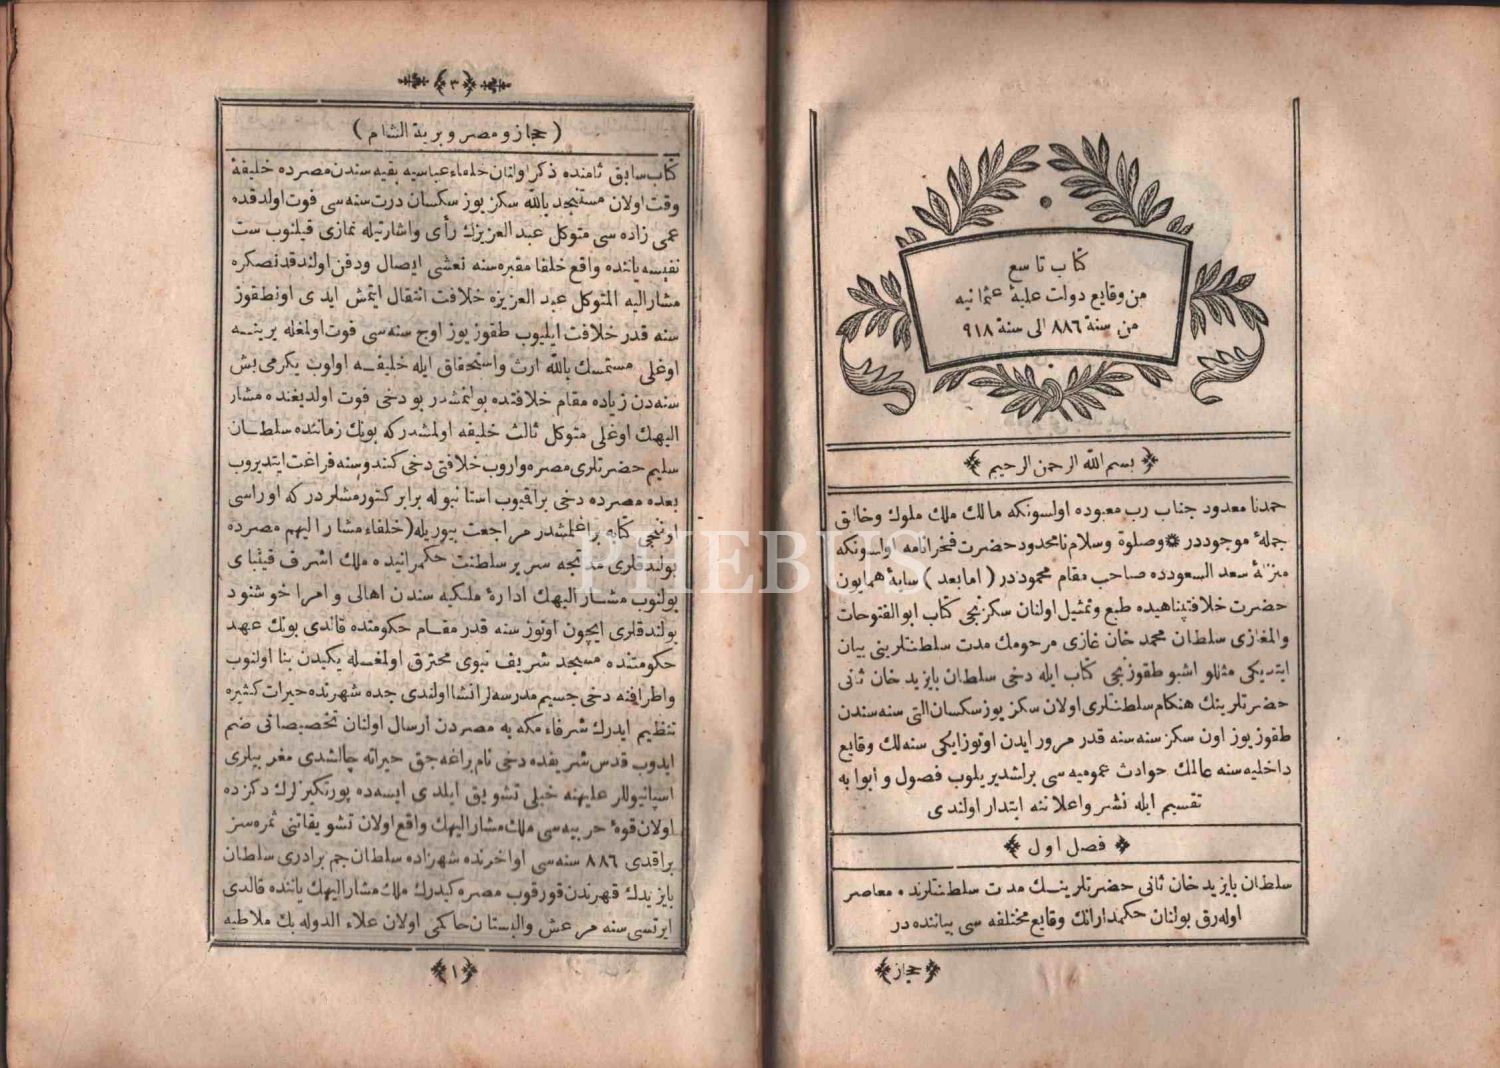 كتاب تاسع
من وقايع دولت عليهٔ عثمانيه
من سنة ٨٨٦ الى سنة ٩١٨
بسم الله الرحمن الرحيم
حمدنا معدود جناب رب معبوده اولسونكه مالك ملك ملوك وخالق
جملهٔ موجوددر وصلوة وسلام نامحدود حضرت فخرانامه اولسونكه
منزلهٔ سعد السعودده صاحب مقام محموددر (امابعد) سايهٔ همايون
حضرت خلافتپناهيده طبع وتمثيل اولنان سكزنجى كتاب ابوالفتوحات
والمغازى سلطان محمد خان غازى مرحومك مدت سلطنتلرينى بيان
ايتديكى مثللو اشبو طقوزنجى كتاب ايله دخى سلطان بايزيد خان ثانى
حضرتلرينك هنكام سلطنتلرى اولان سكز يوز سكسان التى سنه سندن
طقوز يوز اون سكز سنه سنه قدر مرور ايدن اوتوزايكى سنه لك وقايع
داخليه سنه عالمك حوادث عموميه سى برلشديريلوب فصول و ابوابه
تقسيم ايله نشر واعلاننه ابتدار اولندى
فصل اول
سلطان بايزيد خان ثانى حضرتلرينك مدت سلطنتلرنده معاصر
اوله رق بولنان حكمدارانك وقايع مختلفه سى بياننده در
حجاز
٣
(حجاز و مصر و برية الشام)
كتاب سابق ثامنده ذكر اولنان خلفاء عباسيه بقيه سندن مصرده خليفهٔ
وقت اولان مستنجد بالله سكز يوز سكسان درت سنه سى فوت اولدقده
عمى زاده سى متوكل عبد العزيزك رأى واشارتيله نمازى قيلنوب ست
نفيسه ياننده واقع خلفا مقبره سنه نعشى ايصال ودفن اولندقدنصكره
مشاراليه المتوكل عبد العزيزه خلافت انتقال ايتمش ايدى اونطقوز
سنه قدر خلافت ايليوب طقوز يوز اوچ سنه سى فوت اولمغله يرينه
اوغلى مستمسك بالله ارث واستحقاق ايله خليفه اولوب يكرمى بش
سنه دن زياده مقام خلافتده بولنمشدر بو دخى فوت اولديغنده مشار
اليهك اوغلى متوكل ثالث خليفه اولمشدركه بونك زماننده سلطان
سليم حضرتلرى مصره واروب خلافتى دخى كندوسنه فراغت ايتديروب
بعده مصرده دخى براقيوب استانبوله برابر كتورمشلردر كه اوراسى
اوننجى كتابه براغلمشدر مراجعت بيوريله (خلفاء مشار اليهم مصرده
بولندقلرى مدتجه سرير سلطنت حكمرانيده ملك اشرف قيتباى
بولنوب مشار اليهك ادارهٔ ملكيه سندن اهالى و امرا خوشنود
بولندقلرى ايچون اوتوز سنه قدر مقام حكومتده قالدى بونك عهد
حكومتنده مسجد شريف نبوى محترق اولمغله يكيدن بنا اولنوب
واطرافنه دخى جسيم مدرسه لر انشا اولندى جده شهرنده خيرات كثيره
تنظيم ايدرك شرفاء مكه يه مصردن ارسال اولنان تخصيصاتى ضم
ايدوب قدس شريفده دخى نام براغه جق خيراته چالشدى مغربيلرى
اسپانيوللر عليهنه خيلى تشويق ايلدى ايسه ده پورتكيزلرك دكزده
اولان قوهٔ حربيه سى ملك مشاراليهك واقع اولان تشويقاتنى ثمره سز
براقدى ٨٨٦ سنه سى اواخرنده شهزاده سلطان جم برادرى سلطان
بايزيدك قهرندن قورقوب مصره كيدرك ملك مشاراليهك ياننده قالدى
ايرتسى سنه مرعش والبستان حاكمى اولان علاء الدوله بك ملاطيه
١
PHEBUS